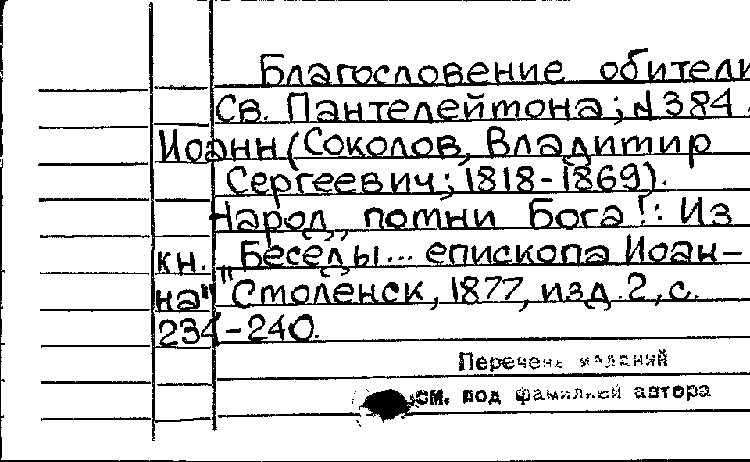 Благословение обители
Св. Пантелеймона; №384.
Иоанн (Соколов, Владимир
Сергеевич; 1818-1869).
Народ, помни Бога!: Из
кн. „Беседы... епископа Иоан-
на" Смоленск, 1877, изд. 2, с.
234-240.
Перечень изданий
см. под фамилией автора